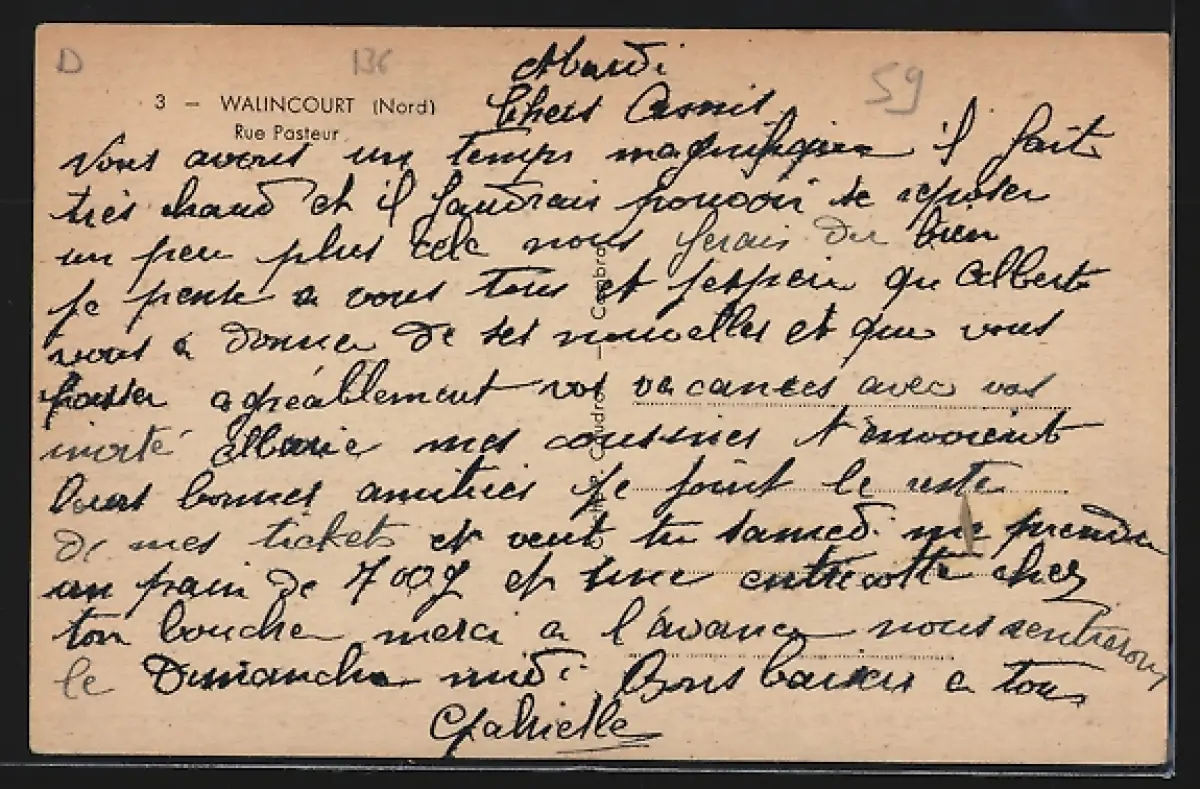 D 136 59
Mardi
3 — WALINCOURT (Nord)
Rue Pasteur
Chers Amis
Nous avons un temps magnifique il fait
très chaud et il faudrais pouvoir se reposer
un peu plus cela nous ferais du bien
je pense a vous tous et j'espère que Albert
vous à donner de ses nouvelles et que vous
passer agréablement vos vacances avec vos
invité Marie mes cousines t'envoient
leurs bonnes amitiés je joint le reste
de mes tickets et veut tu samedi me prendre
un pain de 700g et une entrecotte chez
ton boucher merci a l'avance nous rentrerons
le Dimanche midi Bons baisers a tous
Gabrielle